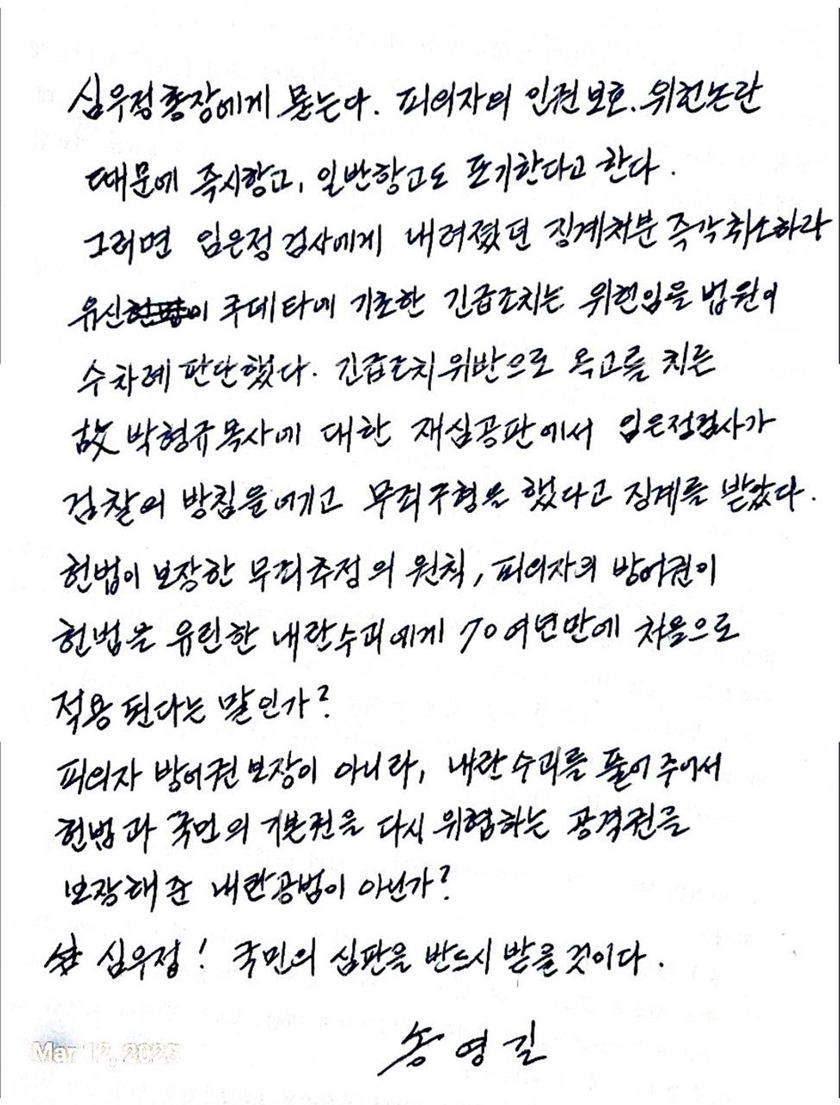 심우정총장에게 묻는다. 피의자의 인권보호. 위헌논란
때문에 즉시항고, 일반항고도 포기한다고 한다.
그러면 임은정 검사에게 내려졌던 징계처분 즉각취소하라
유신 쿠데타에 기초한 긴급조치는 위헌임을 법원이
수차례 판단했다. 긴급조치위반으로 옥고를 치른
故 박형규목사에 대한 재심공판에서 임은정검사가
검찰의 방침을 어기고 무죄구형을 했다고 징계를 받았다.
헌법이 보장한 무죄추정의 원칙, 피의자의 방어권이
헌법을 유린한 내란수괴에게 70여년만에 처음으로
적용된다는 말인가?
피의자 방어권 보장이 아니라, 내란수괴를 풀어주어서
헌법과 국민의 기본권을 다시 위협하는 공격권을
보장해준 내란공범이 아닌가?
심우정! 국민의 심판을 반드시 받을 것이다.
송영길
Mar 12, 2025